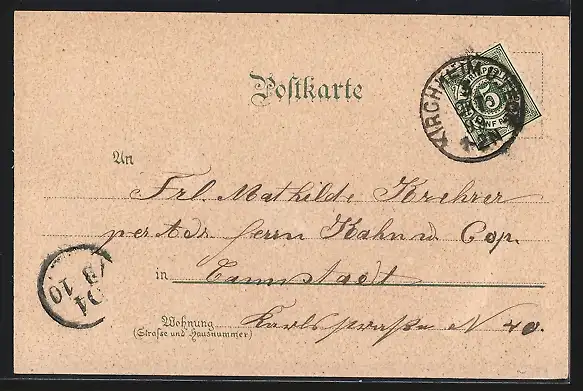 Postkarte
KIRCHHEIM
5
An
Frl. Mathilde Krehrer
per Adr. Herrn Kahn u. Cop.
in Cannstadt
Wohnung
(Strasse und Hausnummer)
Karlsstraße N 40.
10